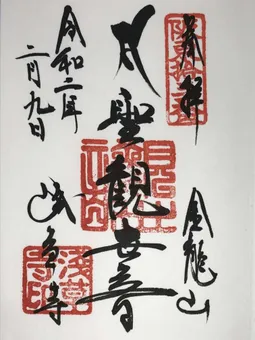 奉拝
坂東拾三番
金龍山
大聖観世音
令和二年
二月九日
浅草寺
浅草寺印